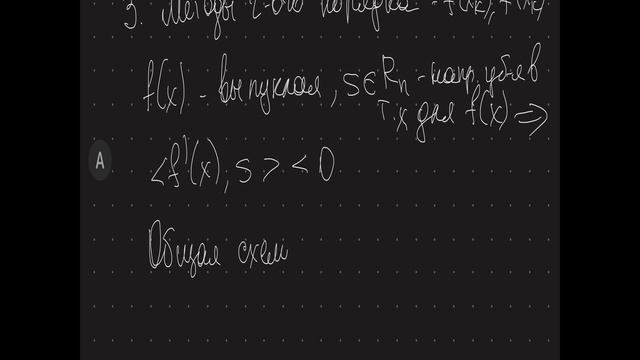 3. Методы 2-ого порядка - f(xₖ), f'(xₖ)
f(x) - выпуклая, s ∈ Rₙ - напр. убыв в
т. x для f(x) ⇒
<f'(x), s> < 0
A
Общая схем